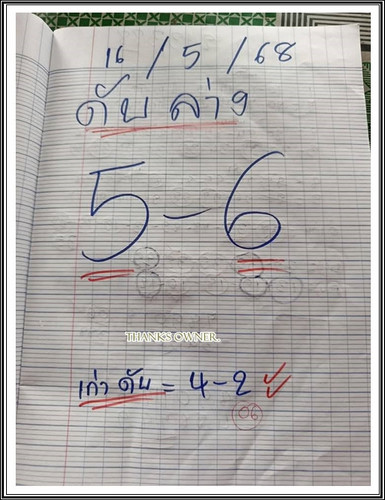 16 / 5 / 68
ดับ ล่าง
5 - 6
THANKS OWNER..
เก่า ดับ = 4 - 2
06